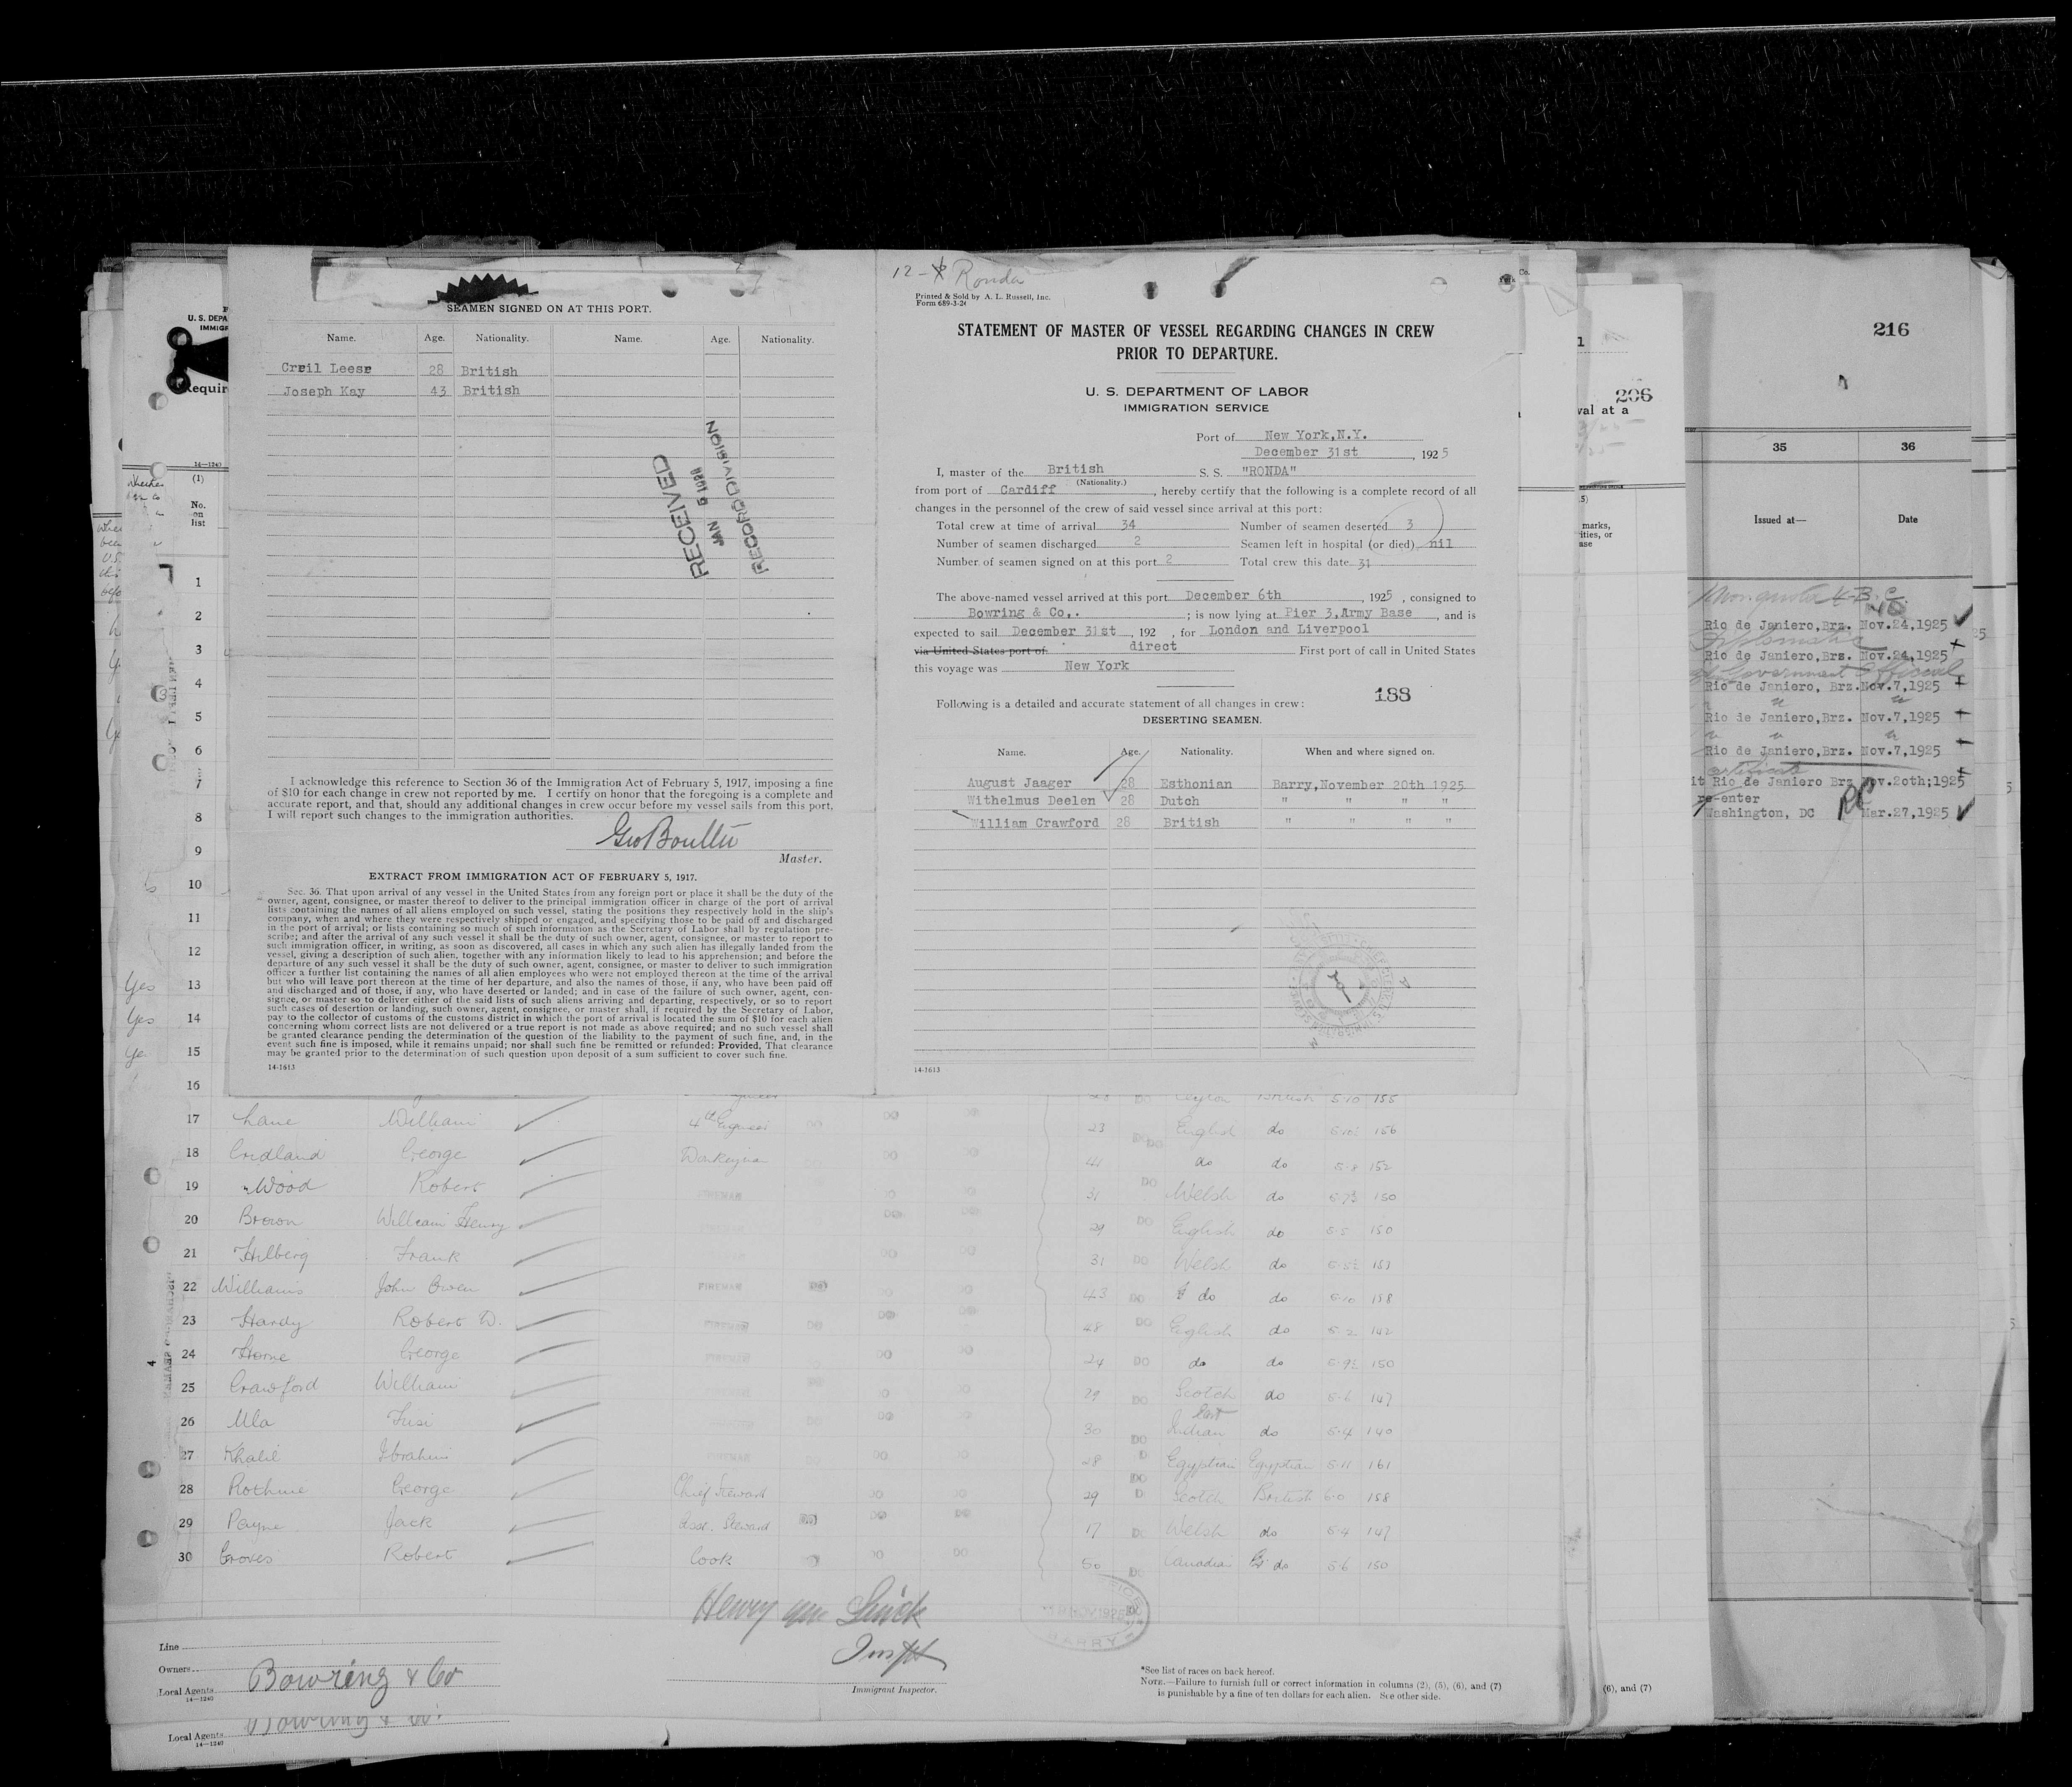 SEAMEN SIGNED ON AT THIS PORT.
Name. Age. Nationality. Name. Age. Nationality.
Cryil Leese 28 British
Joseph Kay 43 British
RECEIVED
JAN
RECORD DIVISION
I acknowledge this reference to Section 36 of the Immigration Act of February 5, 1917, imposing a fine
of $10 for each change in crew not reported by me. I certify on honor that the foregoing is a complete and
accurate report, and that, should any additional changes in crew occur before my vessel sails from this port,
I will report such changes to the immigration authorities.
Master.
EXTRACT FROM IMMIGRATION ACT OF FEBRUARY 5, 1917.
Sec. 36. That upon arrival of any vessel in the United States from any foreign port or place it shall be the duty of the
owner, agent, consignee, or master thereof to deliver to the principal immigration officer in charge of the port of arrival
lists containing the names of all aliens employed on such vessel, stating the positions they respectively hold in the ship's
company, when and where they were respectively shipped or engaged, and specifying those to be paid off and discharged
in the port of arrival; or lists containing so much of such information as the Secretary of Labor shall by regulation pre-
scribe; and after the arrival of any such vessel it shall be the duty of such owner, agent, consignee, or master to report to
such immigration officer, in writing, as soon as discovered, all cases in which any such alien has illegally landed from the
vessel, giving a description of such alien, together with any information likely to lead to his apprehension; and before the
departure of any such vessel it shall be the duty of such owner, agent, consignee, or master to deliver to such immigration
officer a further list containing the names of all alien employees who were not employed thereon at the time of the arrival
but who will leave port thereon at the time of her departure, and also the names of those, if any, who have been paid off
and discharged and of those, if any, who have deserted or landed; and in case of the failure of such owner, agent, con-
signee, or master so to deliver either of the said lists of such aliens arriving and departing, respectively, or so to report
such cases of desertion or landing, such owner, agent, consignee, or master shall, if required by the Secretary of Labor,
pay to the collector of customs of the customs district in which the port of arrival is located the sum of $10 for each alien
concerning whom correct lists are not delivered or a true report is not made as above required; and no such vessel shall
be granted clearance pending the determination of the question of the liability to the payment of such fine, and, in the
event such fine is imposed, while it remains unpaid; nor shall such fine be remitted or refunded: Provided, That clearance
may be granted prior to the determination of such question upon deposit of a sum sufficient to cover such fine.
14-1613
Ronda
Printed & Sold by A. L. Russell, Inc.
Form 689-3-24
STATEMENT OF MASTER OF VESSEL REGARDING CHANGES IN CREW
PRIOR TO DEPARTURE.
U. S. DEPARTMENT OF LABOR
IMMIGRATION SERVICE
Port of New York,N.Y.
December 31st , 1925
I, master of the British S. S. "RONDA"
(Nationality.)
from port of Cardiff , hereby certify that the following is a complete record of all
changes in the personnel of the crew of said vessel since arrival at this port:
Total crew at time of arrival 34 Number of seamen deserted 3
Number of seamen discharged 2 Seamen left in hospital (or died) nil
Number of seamen signed on at this port 2 Total crew this date 31
The above-named vessel arrived at this port December 6th , 1925 , consigned to
Bowring & Co,. ; is now lying at Pier 3,Army Base , and is
expected to sail December 31st , 192 , for London and Liverpool
via United States port of direct First port of call in United States
this voyage was New York
188
Following is a detailed and accurate statement of all changes in crew:
DESERTING SEAMEN.
Name. Age. Nationality. When and where signed on.
August Jaager 28 Esthonian Barry,November 20th 1925
Withelmus Deelen 28 Dutch " " " "
William Crawford 28 British " " " "
14-1613
216
206
val at a
35 36
Issued at— Date
Rio de Janiero,Brz. Nov.24,1925
Diplomatic
Rio de Janiero,Brz. Nov.24,1925
Government Official
Rio de Janiero, Brz. Nov.7,1925
Rio de Janiero,Brz. Nov.7,1925
Rio de Janiero,Brz. Nov.7,1925
it Rio de Janiero Brz Nov.20th;1925
re-enter
Washington, DC Mar.27,1925
U. S. DEPA
IMMIGR
Requir
14—1240
(1)
No.
on
list
1
2
3
4
5
6
7
8
9
10
11
12
Yes 13
Yes 14
15
16
17 Lane William 4th Engineer 23 English do 156
18 Cridland George Donkeyman do do 5-8 152
19 Wood Robert FIREMAN 31 Welsh do 150
20 Brown William Henry 29 English do 5-5 150
21 Hilberg Frank 31 Welsh do 153
22 Williams John Owen FIREMAN 43 do do 5-10 158
23 Hardy Robert D. FIREMAN 48 English do 5-2 142
24 Horne George FIREMAN 24 do do 150
25 Crawford William 29 Scotch do 5-6 147
26 Ula Fusi 30 East Indian do 5-4 140
27 Khalil Ibrahim FIREMAN 28 Egyptian Egyptian 5-11 161
28 George Chief Steward 29 Scotch British 6-0 158
29 Payne Jack Asst. Steward 17 Welsh do 5-4 147
30 Groves Robert Cook 50 Canadian do 5-6 150
BARRY
Line
Owners
Local Agents Bowring & Co
14—1240
Immigrant Inspector.
*See list of races on back hereof.
NOTE.—Failure to furnish full or correct information in columns (2), (5), (6), and (7)
is punishable by a fine of ten dollars for each alien. See other side.
(6), and (7)
Local Agents Bowring & Co.
14—1240